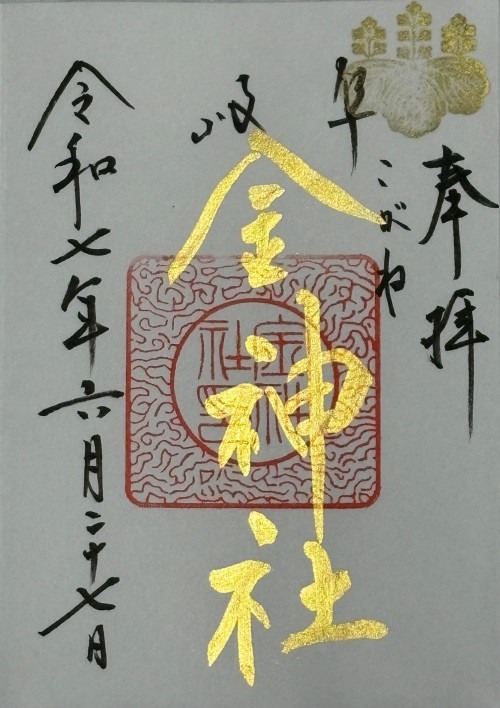 奉拝
岐阜
こがね
金神社
令和七年六月二十七日